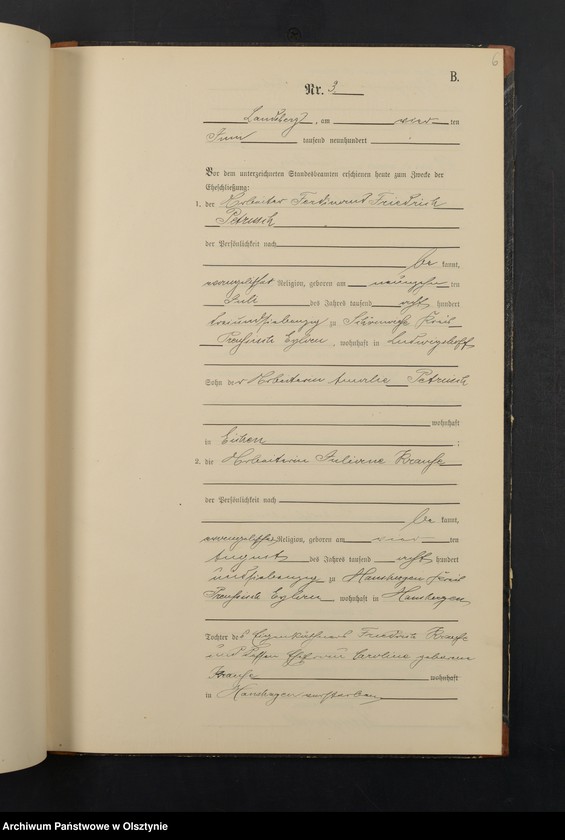 6
B.
Nr. 3
Landsberg, am vier ten
Juni tausend neunhundert
Vor dem unterzeichneten Standesbeamten erschienen heute zum Zwecke der
Eheschließung:
1. der Arbeiter Ferdinand Friedrich
Petrusch
der Persönlichkeit nach
be kannt,
evangelischer Religion, geboren am neunzehn ten
Juli des Jahres tausend acht hundert
dreiundsiebenzig zu Kreis
Preußisch Eylau, wohnhaft in Ludwigshoff
Sohn der Arbeiterin Amalie Petrusch
wohnhaft
in Eichen ;
2. die Arbeiterin Juliane Krause
der Persönlichkeit nach
be kannt,
evangelischer Religion, geboren am vier ten
August des Jahres tausend acht hundert
undsiebenzig zu Hanshagen Kreis
Preußisch Eylau wohnhaft in Hanshagen
Tochter des Eigenkäthners Friedrich Krause
und dessen Ehefrau Caroline geborene
Krause wohnhaft
in Hanshagen verstorben
Archiwum Państwowe w Olsztynie